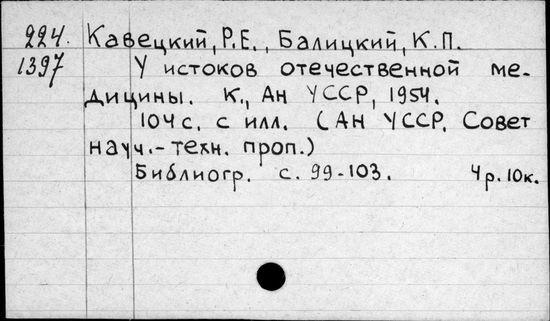 224. Кавецкий, Р.Е., Балицкий, К.П.
1397 У истоков отечественной ме-
дицины. К., Ан УССР, 1954.
104 с. с илл. (АН УССР. Совет
науч.-техн. проп.)
Библиогр. с. 99-103. 4р. 10к.